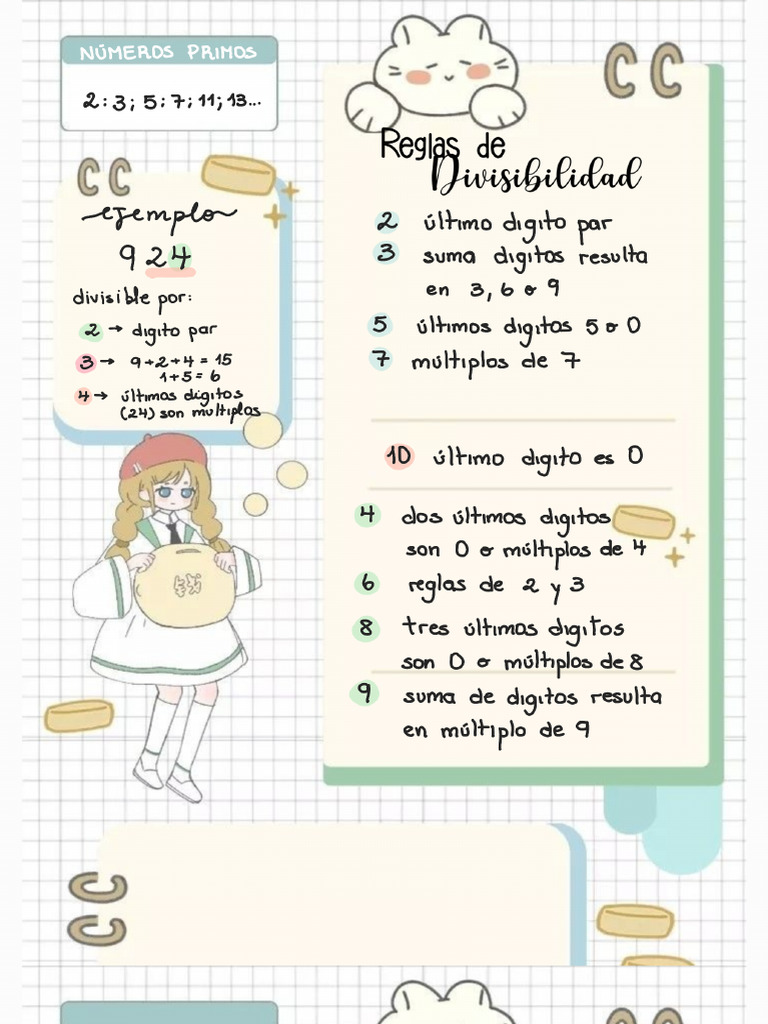 NÚMEROS PRIMOS
2: 3; 5; 7; 11; 13...
ejemplo
924
divisible por:
2 → digito par
3 → 9+2+4 = 15
1+5 = 6
4 → últimos digitos
(24) son multiplos
Reglas de
Divisibilidad
2 último digito par
3 suma digitos resulta
en 3, 6 o 9
5 últimos digitos 5 o 0
7 múltiplos de 7
10 último digito es 0
4 dos últimos digitos
son 0 o múltiplos de 4
6 reglas de 2 y 3
8 tres últimos digitos
son 0 o múltiplos de 8
9 suma de digitos resulta
en múltiplo de 9